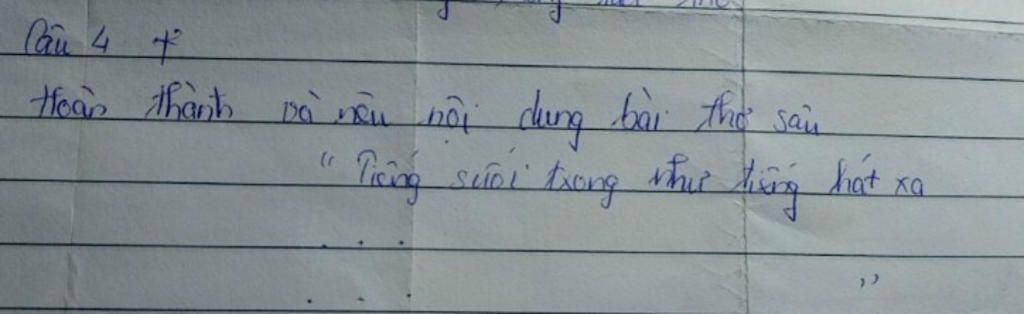 Câu 4 +
Hoàn thành và nêu nội dung bài thơ sau
" Tiếng suối trong như tiếng hát xa
. . .
. . . "